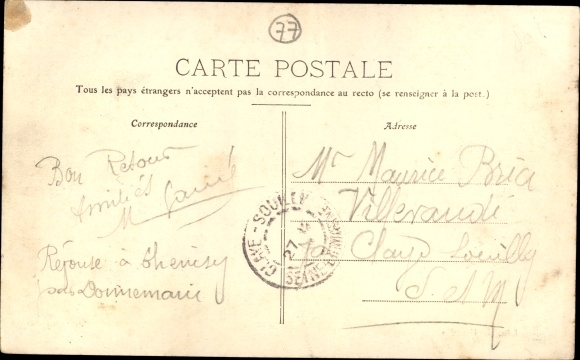 77
CARTE POSTALE
Tous les pays étrangers n'acceptent pas la correspondance au recto (se renseigner à la post.)
Correspondance
Adresse
Bon Retour
Amitiés
M
Réponse à Thenisy
par Donnemarie
Mr Maurice Brice
Villevaudé
par Claye Souilly
S. & M
CLAYE-SOUILLY
27
SEINE-ET-MARNE